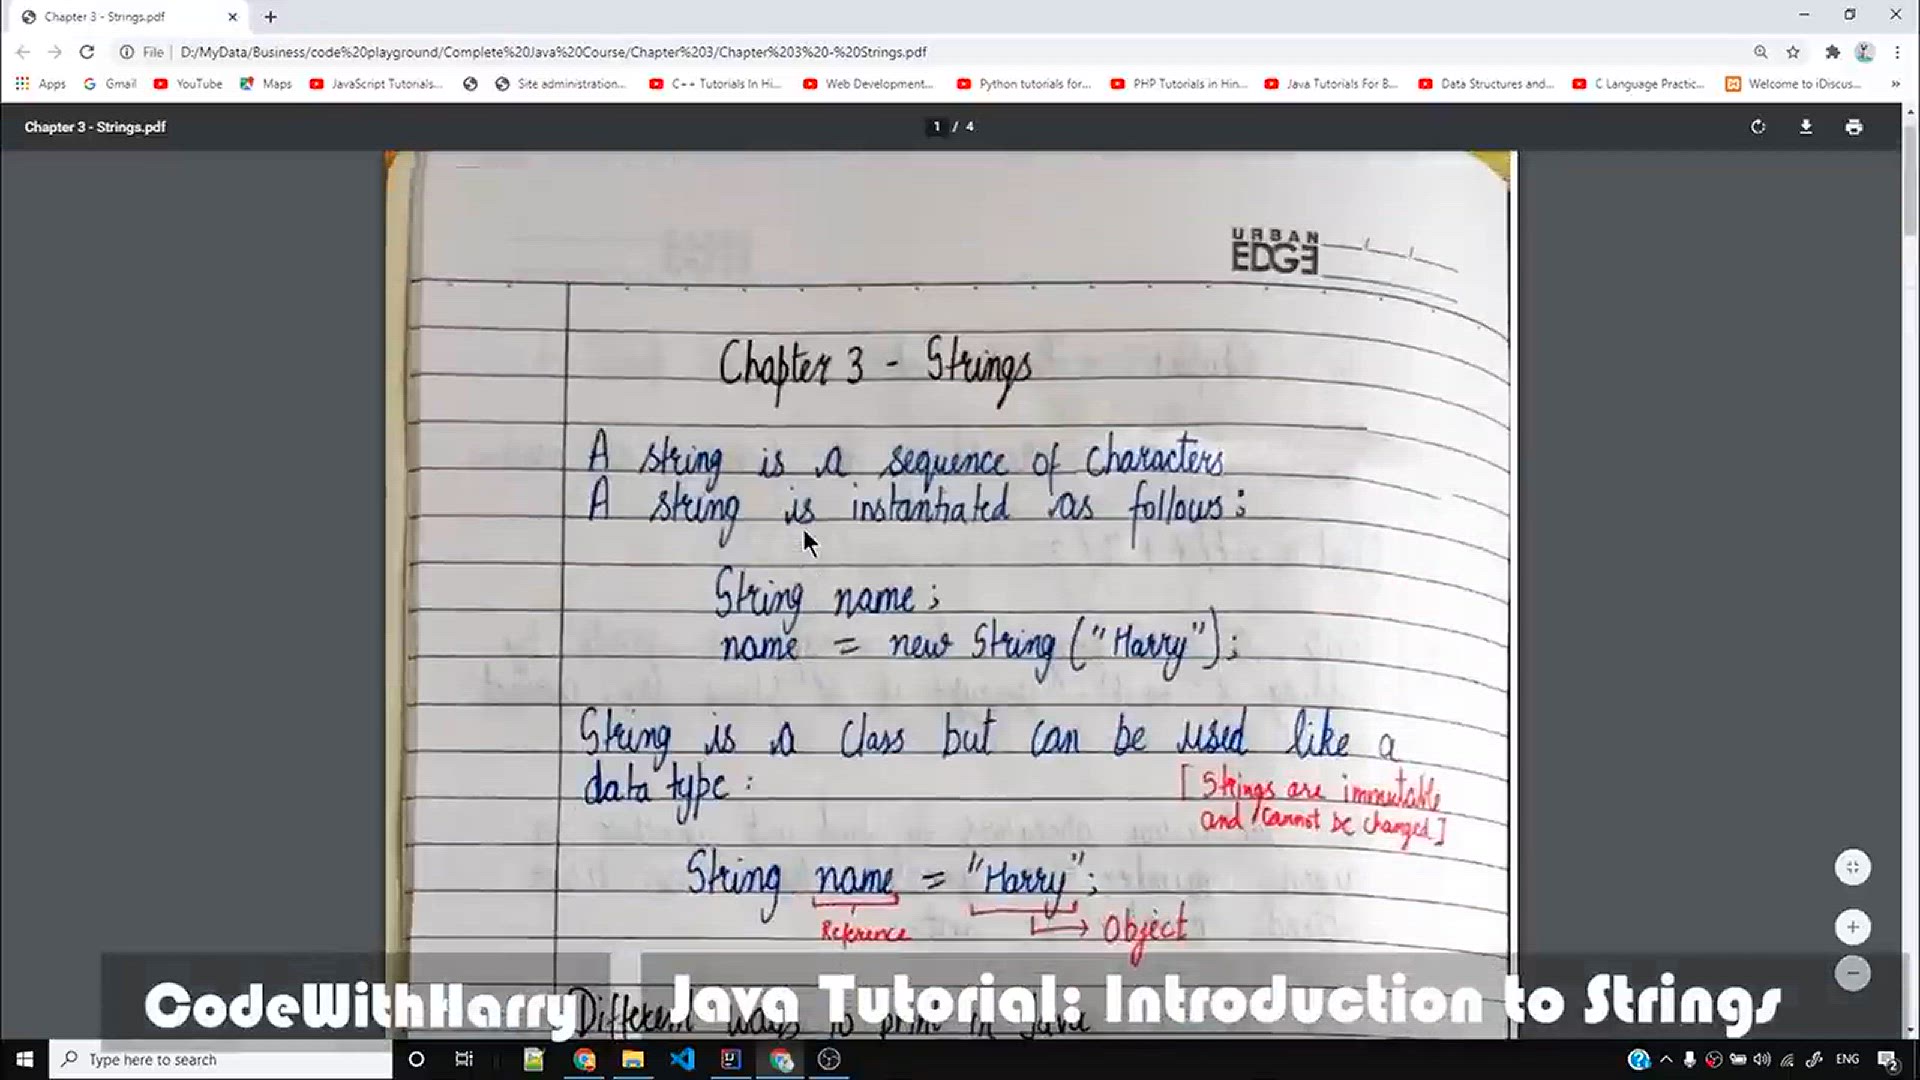 Chapter 3 - Strings.pdf
File | D:/MyData/Business/code%20playground/Complete%20Java%20Course/Chapter%203/Chapter%203%20-%20Strings.pdf
Apps Gmail YouTube Maps JavaScript Tutorials... Site administration... C++ Tutorials In Hi... Web Development... Python tutorials for... PHP Tutorials in Hin... Java Tutorials For B... Data Structures and... C Language Practic... Welcome to iDiscus... »
Chapter 3 - Strings.pdf 1 / 4
URBAN
EDGE
Chapter 3 - Strings
A string is a sequence of characters
A string is instantiated as follows:
String name;
name = new String ("Harry");
String is a class but can be used like a
data type:
[Strings are immutable
and cannot be changed]
String name = "Harry";
Reference
Object
Different ways to print in Java
CodeWithHarry Java Tutorial: Introduction to Strings
Type here to search ENG 2